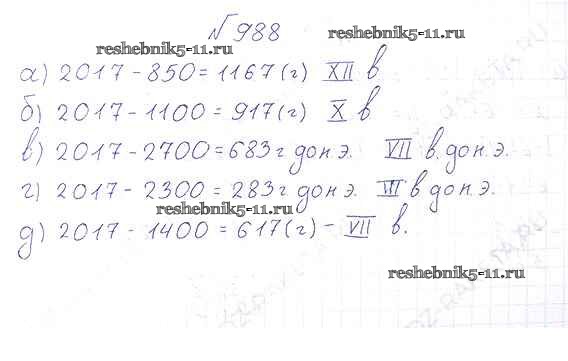 №988
reshebnik5-11.ru
reshebnik5-11.ru
а) 2017-850=1167(г) XII в
б) 2017-1100=917(г) X в
в) 2017-2700=683г до н.э. VII в. до н.э.
г) 2017-2300=283г до н.э. III в до н.э.
reshebnik5-11.ru
д) 2017-1400=617(г)- VII в.
reshebnik5-11.ru